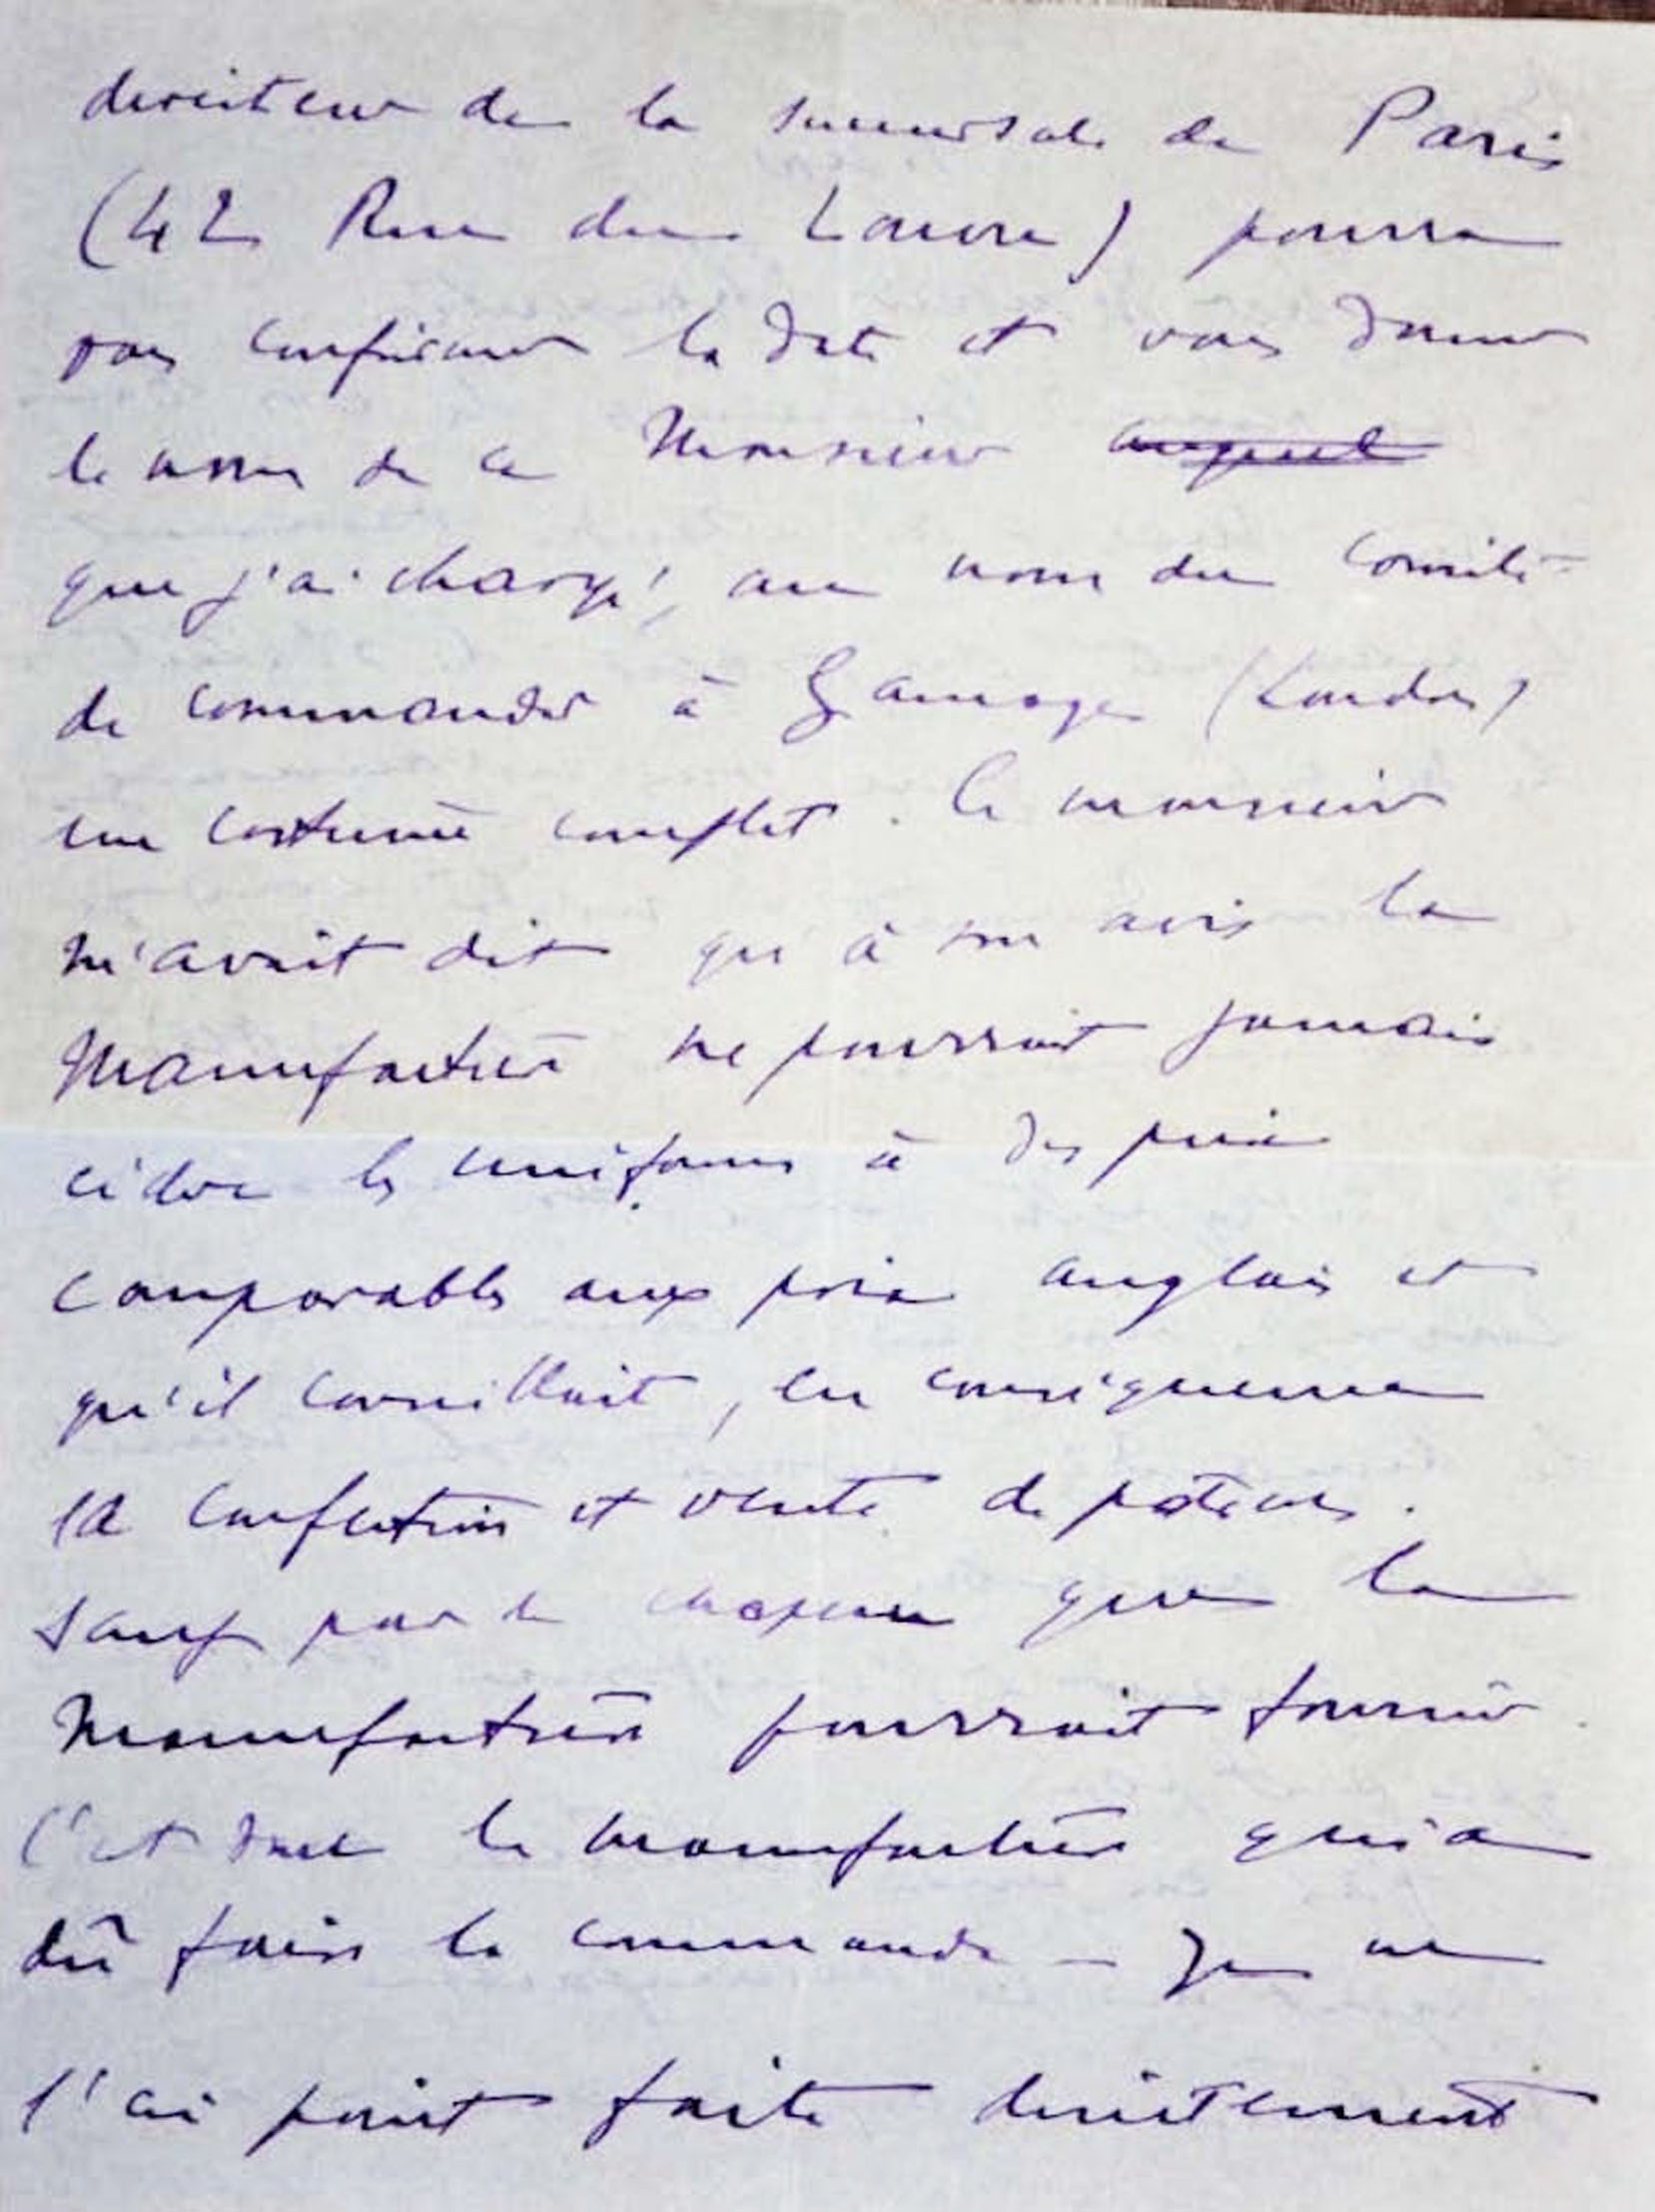 directeur de la succursale de Paris
(42 Rue du Louvre) pourra
vous confirmer la date et vous donner
le nom de ce Monsieur auquel
que j'ai chargé, au nom du Comité
de commander à Gamages (Londres)
un costume complet. Ce monsieur
m'avait dit qu'à son avis la
Manufacture ne pourrait jamais
céder les uniformes à des prix
comparables aux prix anglais et
qu'il conseillait, en conséquence
la confection et vente de
sauf pour le chapeau que la
Manufacture pourrait fournir.
C'est donc la manufacture qui a
dû faire la commande – Je ne
l'ai point faite directement